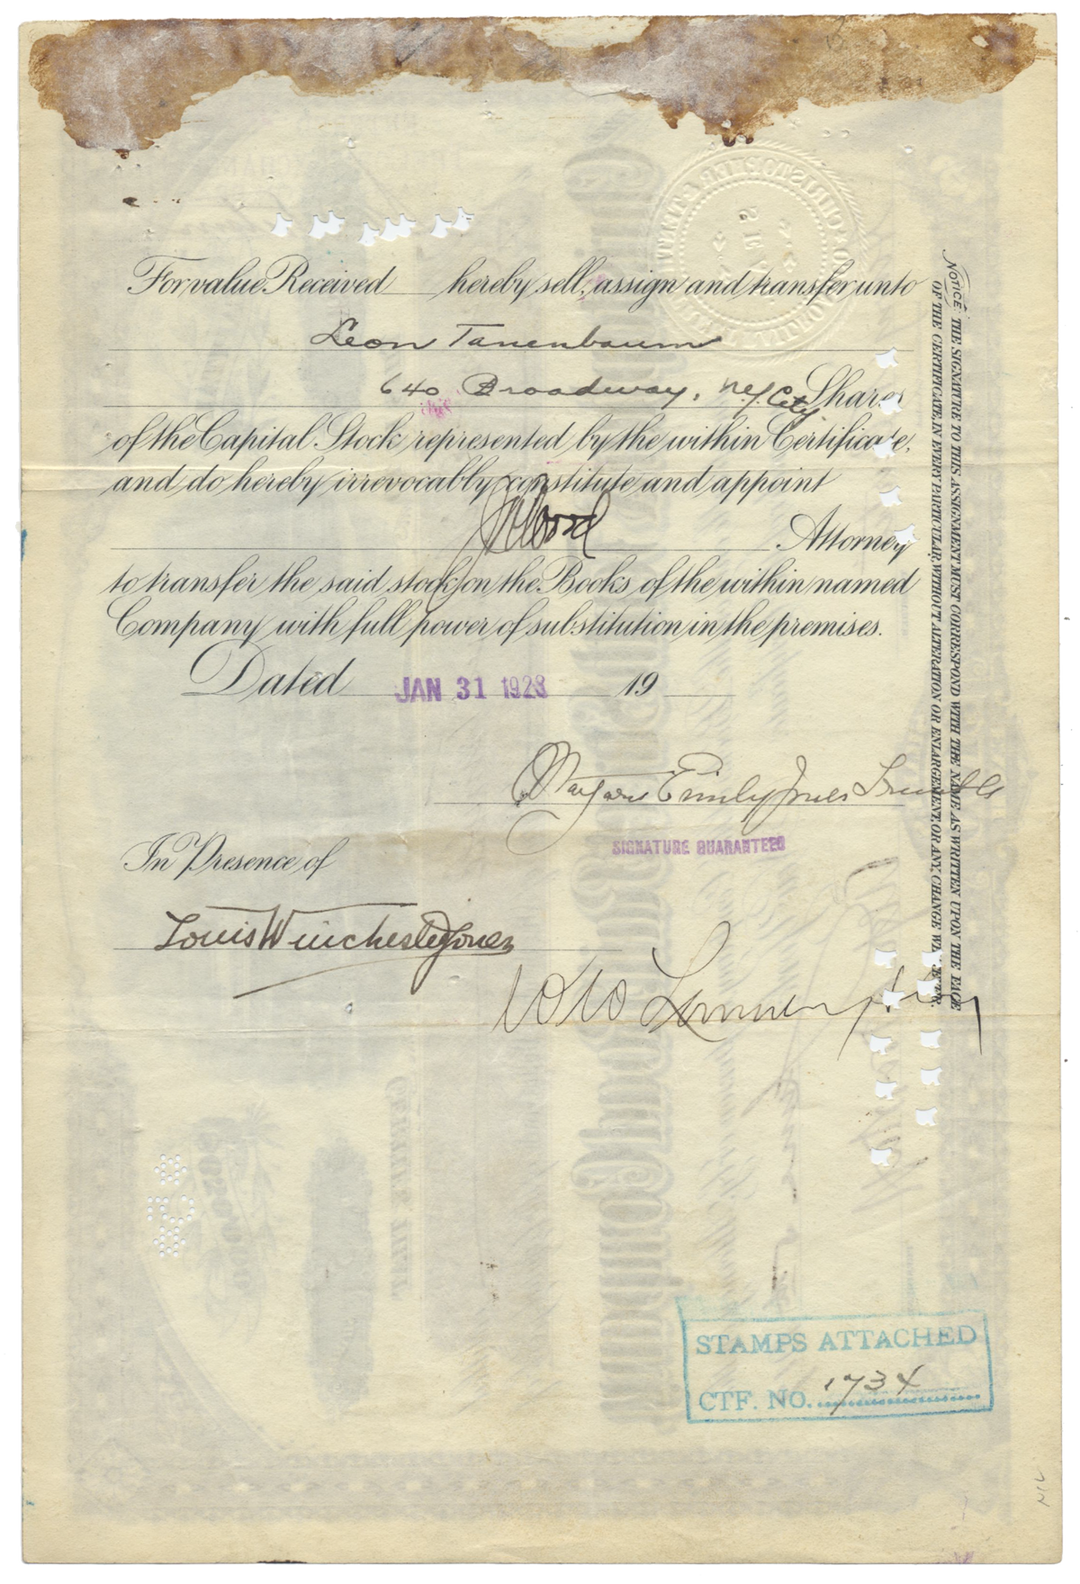 For value Received hereby sell, assign and transfer unto
Leon Tanenbaum
640 Broadway, N.Y. City Shares
of the Capital Stock represented by the within Certificate,
and do hereby irrevocably constitute and appoint
Attorney
to transfer the said stock on the Books of the within named
Company with full power of substitution in the premises.
Dated JAN 31 1928 19
Emily Jones
SIGNATURE GUARANTEED
In Presence of
Louis Winchester Jones
NOTICE: THE SIGNATURE TO THIS ASSIGNMENT MUST CORRESPOND WITH THE NAME AS WRITTEN UPON THE FACE
OF THE CERTIFICATE, IN EVERY PARTICULAR, WITHOUT ALTERATION OR ENLARGEMENT, OR ANY CHANGE
STAMPS ATTACHED
CTF. NO. 1734